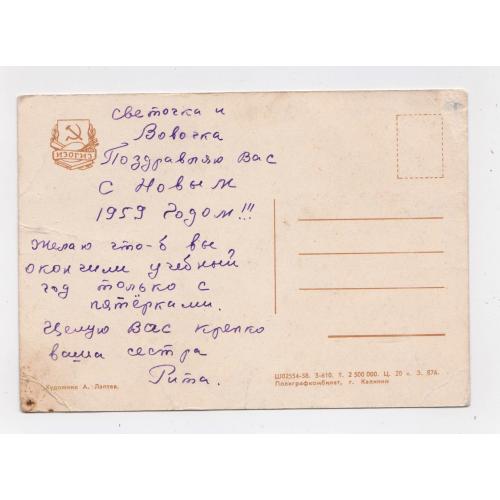 ИЗОГИЗ
Светочка и
Вовочка
Поздравляю Вас
с Новым
1959 годом!!!
Желаю что-б вы
окончили учебный
год только с
пятёрками.
Целую Вас крепко
ваша сестра
Рита.
Художник А. Лаптев.
Ш02554-58. 5-610. Т. 2 500 000. Ц. 20 к. З. 876.
Полиграфкомбинат, г. Калинин